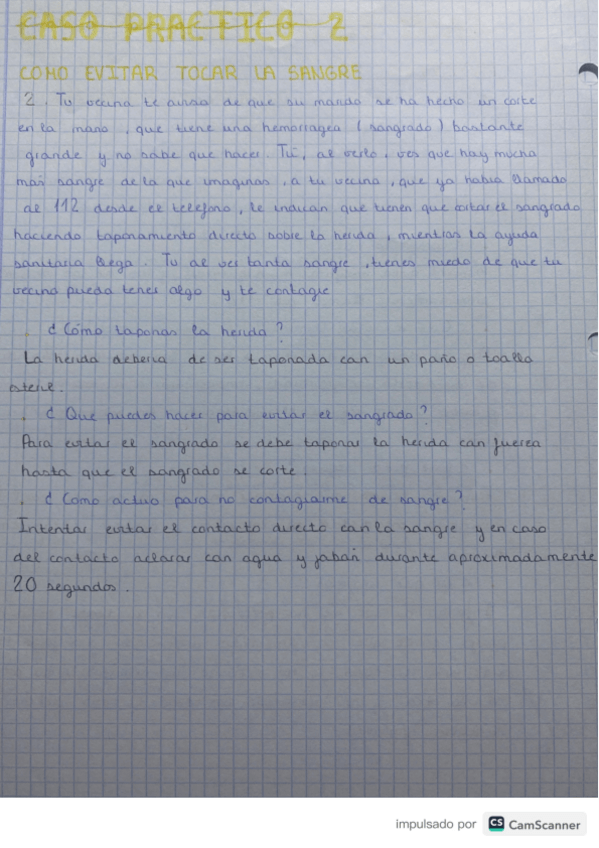 CASO PRACTICO 2
COMO EVITAR TOCAR LA SANGRE
2. Tu vecina te avisa de que su marido se ha hecho un corte
en la mano, que tiene una hemorragea (sangrado) bastante
grande y no sabe que hacer. Tú, al verlo, ves que hay mucha
mas sangre de la que imaginas, a tu vecina, que ya habia llamado
al 112 desde el telefono, le indican que tienen que cortar el sangrado
haciendo taponamiento directo sobre la herida, mientras la ayuda
sanitaria llega. Tu al ver tanta sangre, tienes miedo de que tu
vecino pueda tener algo y te contagie
. ¿Cómo taponas la herida?
La herida deberia de ser taponada con un paño o toalla
esteril.
. ¿Que puedes hacer para evitar el sangrado?
Para evitar el sangrado se debe taponar la herida con fuerea
hasta que el sangrado se corte.
. ¿Como actuo para no contagiarme de sangre?
Intentar evitar el contacto directo con la sangre y en caso
del contacto aclarar con agua y jabón durante aproximadamente
20 segundos.
impulsado por CS CamScanner